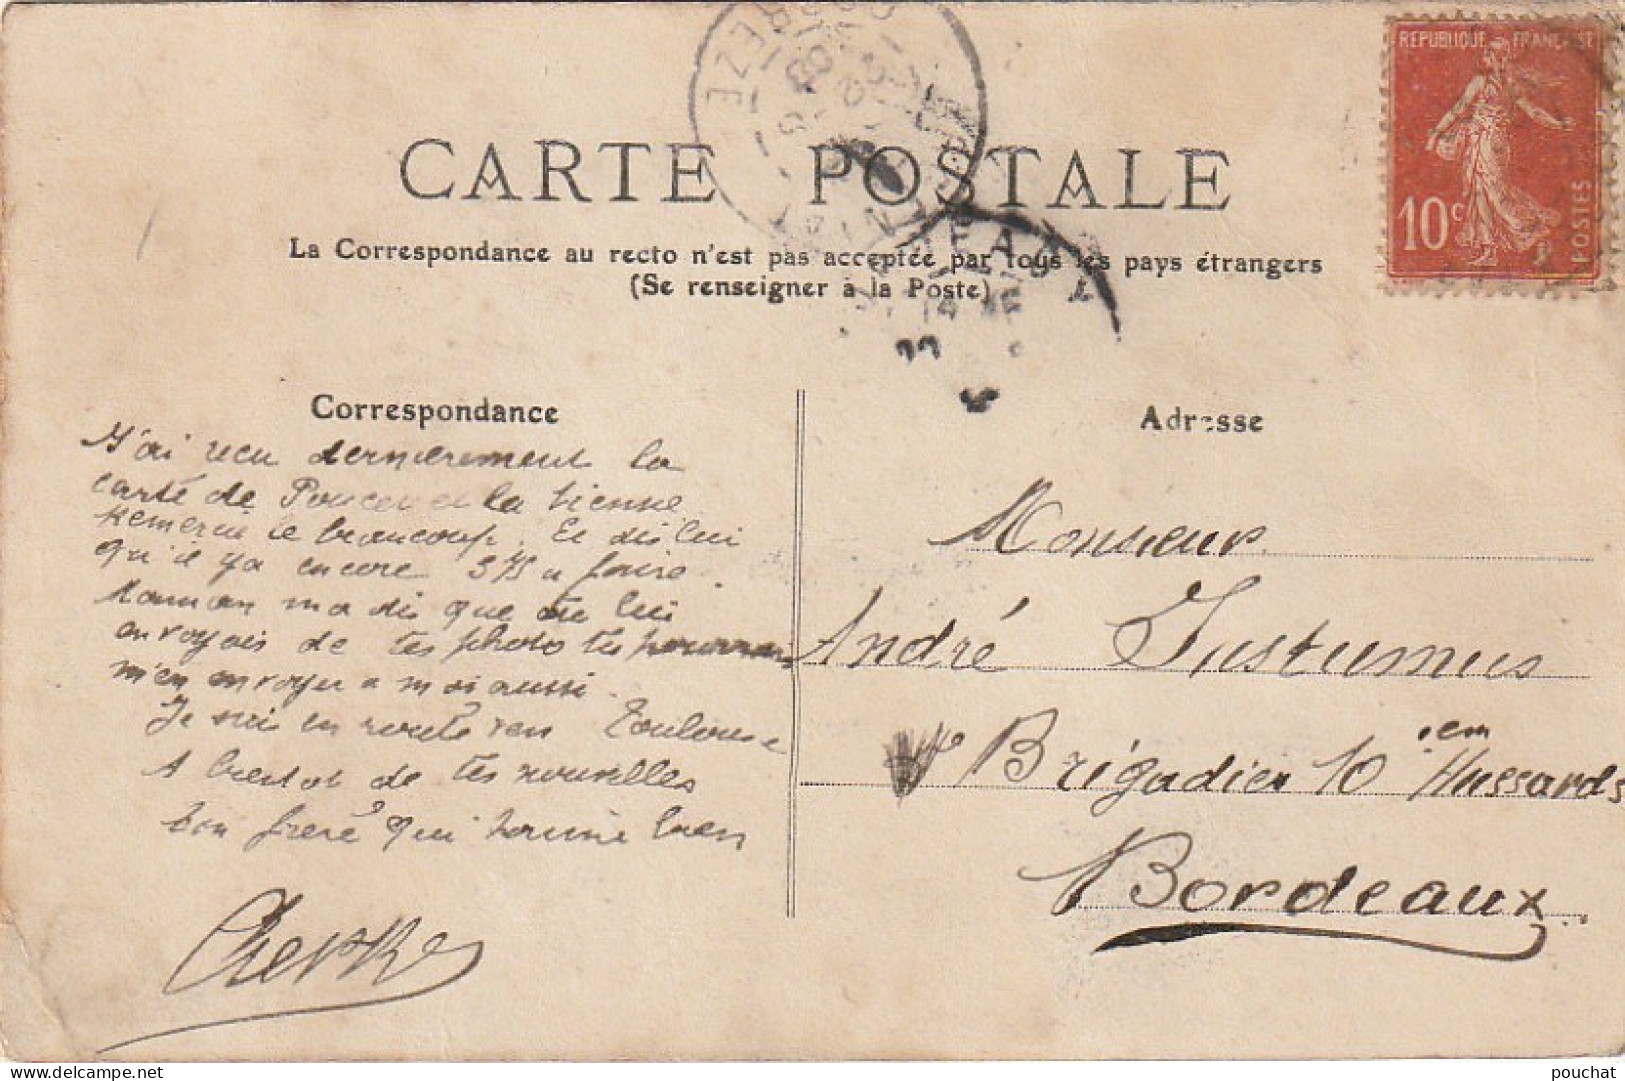 REPUBLIQUE FRANÇAISE
10c
POSTES
CARTE POSTALE
La Correspondance au recto n'est pas acceptée par tous les pays étrangers
(Se renseigner à la Poste)
Correspondance
J'ai recu dernierement la
carté de et la tienne
Remercie le beaucoup. Et dis lui
qu'il y a encore 375 a faire.
Maman m'a dis que tu lui
envoyais de tes photo tu pourrais
m'en envoyer a moi aussi.
Je suis en route ven Toulouse
A bientot de tes nouvelles
ton freré qui t'aime bien
Adresse
Monsieur
André Justumus
Brigadier 10 iem Hussards
Bordeaux
pouchat
www.delcampe.net